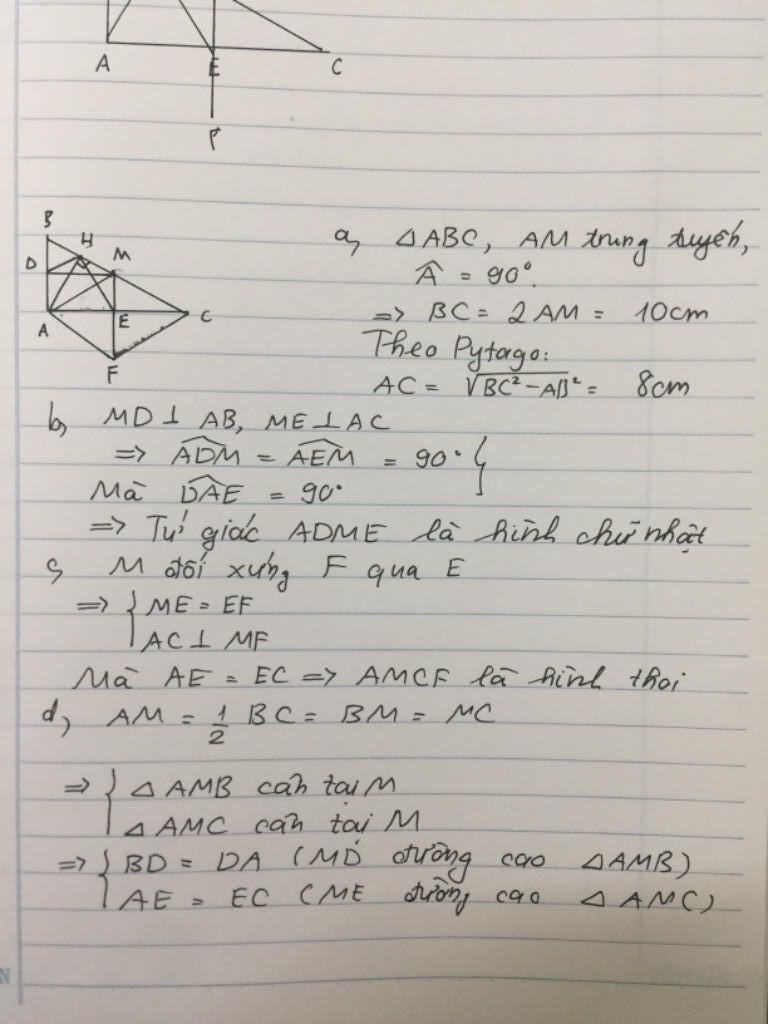 A
E
C
F
B
H
D
M
A
E
C
F
a, △ABC, AM trung tuyến,
Â = 90°.
=> BC = 2AM = 10cm
Theo Pytago:
AC = √BC² - AB² = 8cm
b, MD ⊥ AB, ME ⊥ AC
=> ADM = AEM = 90° }
Mà DAE = 90°
=> Tứ giác ADME là hình chữ nhật
c, M đối xứng F qua E
=> { ME = EF
AC ⊥ MF
Mà AE = EC => AMCF là hình thoi
d, AM = 1/2 BC = BM = MC
=> { △AMB cân tại M
△AMC cân tại M
=> { BD = DA (MD đường cao △AMB)
AE = EC (ME đường cao △AMC)